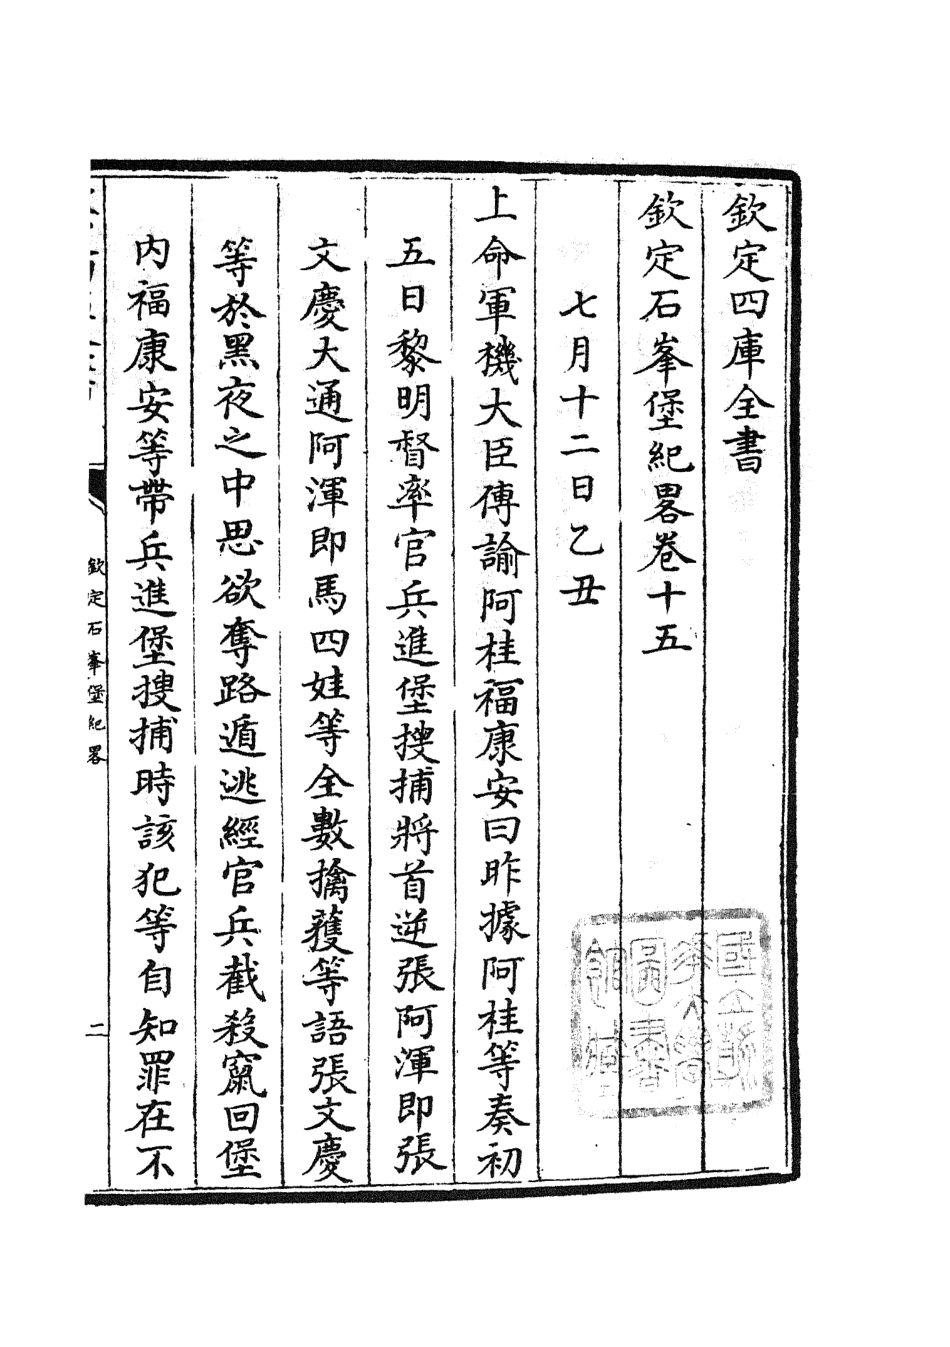 欽定四庫全書
欽定石峯堡紀畧卷十五
七月十二日乙丑
上命軍機大臣傳諭阿桂福康安曰昨據阿桂等奏初
五日黎明督率官兵進堡搜捕將首逆張阿渾即張
文慶大通阿渾即馬四娃等全數擒獲等語張文慶
等於黑夜之中思欲奪路遁逃經官兵截殺竄回堡
内福康安等帶兵進堡搜捕時該犯等自知罪在不
欽定石峯堡紀畧
二